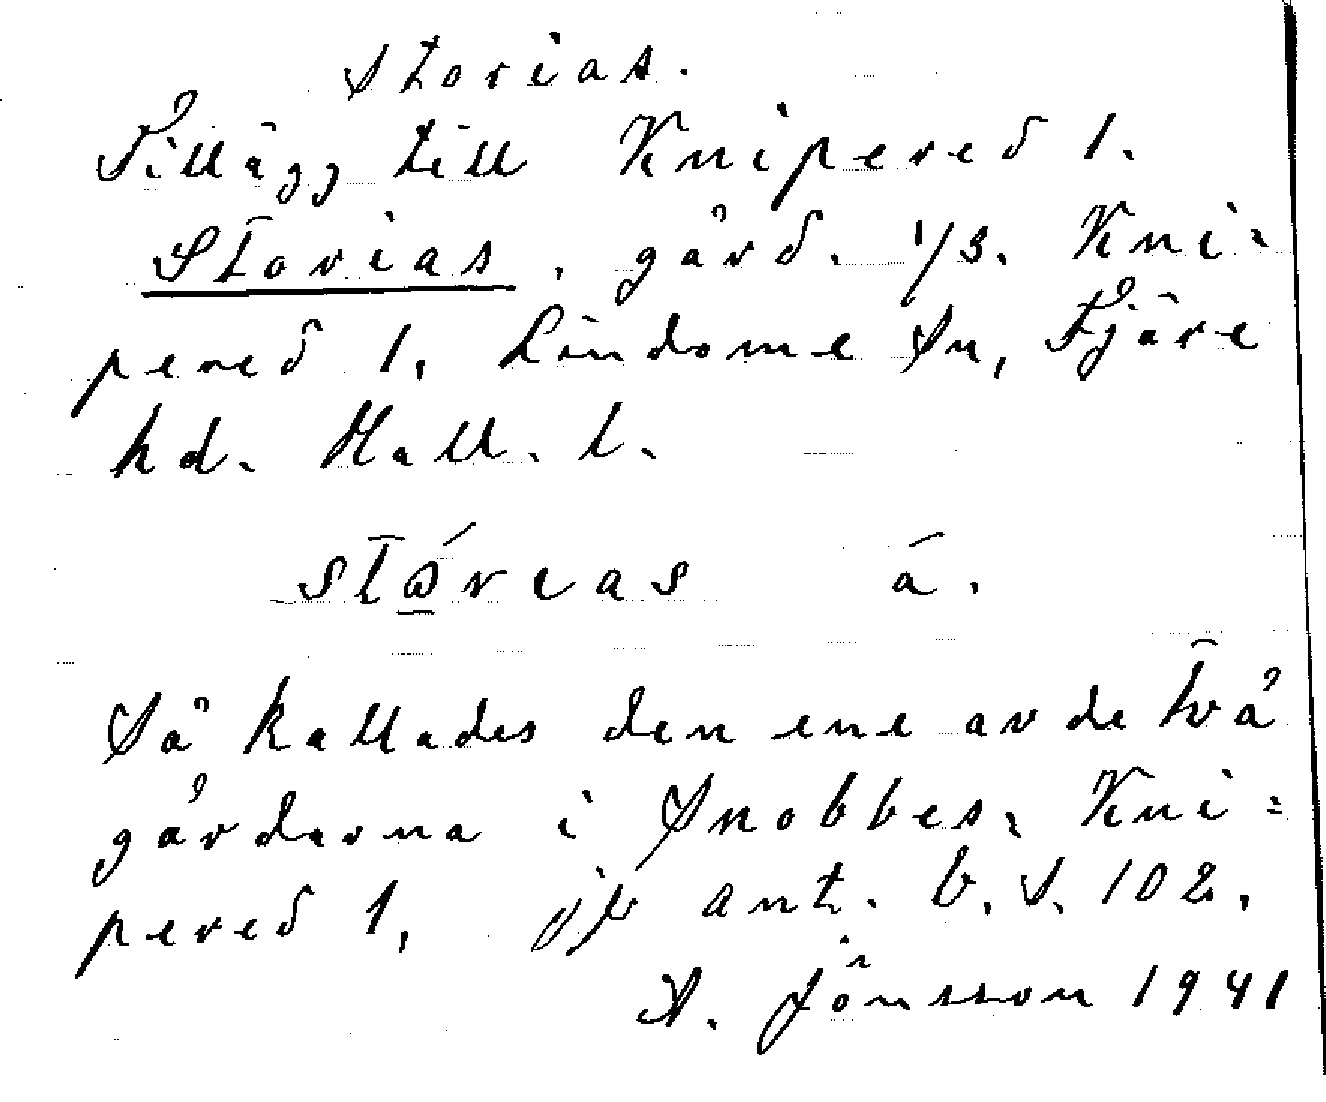 Storias.
Tillägg till Knipered 1.
Storias, gård. 1/3. Kni-
pered 1, Lindome Sn, Fjäre
hd. Hall. l.
Stǿrias á.
Så kallades den ene av de två
gårderna i Snobbes, Kni=
pered 1, jfr ant. b. S. 102.
A. Jönsson 1941